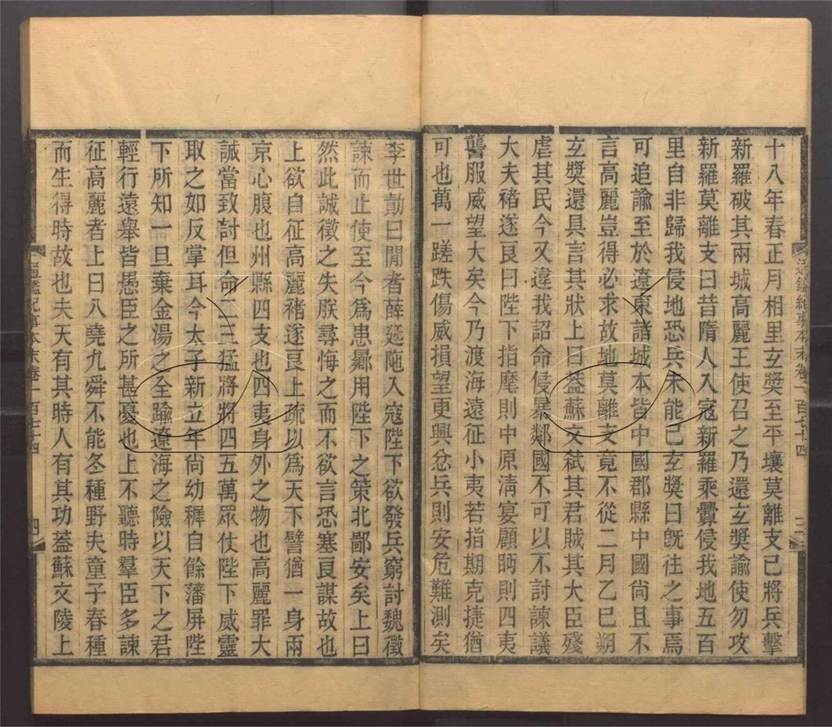 十八年春正月相里玄獎至平壤莫離支已將兵擊
新羅破其兩城高麗王使召之乃還玄獎諭使勿攻
新羅莫離支曰昔隋人入寇新羅乘釁侵我地五百
里自非歸我侵地恐兵未能已玄獎曰旣往之事焉
可追論至於遼東諸城本皆中國郡縣中國尚且不
言高麗豈得必求故地莫離支竟不從二月乙巳朔
玄獎還具言其狀上曰葢蘇文弒其君賊其大臣殘
虐其民今又違我詔命侵暴鄰國不可以不討諫議
大夫褚遂良曰陛下指麾則中原淸宴顧眄則四夷
讋服威望大矣今乃渡海遠征小夷若指期克捷猶
可也萬一蹉跌傷威損望更興忿兵則安危難測矣
通鑑紀事本末卷一百七十四
李世勣曰閒者薛延陁入寇陛下欲發兵窮討魏徵
諫而止使至今爲患曏用陛下之策北鄙安矣上曰
然此誠徵之失朕尋悔之而不欲言恐塞良謀故也
上欲自征高麗褚遂良上疏以爲天下譬猶一身兩
京心腹也州縣四支也四夷身外之物也高麗罪大
誠當致討但命二三猛將將四五萬眾仗陛下威靈
取之如反掌耳今太子新立年尚幼穉自餘藩屏陛
下所知一旦棄金湯之全踰遼海之險以天下之君
輕行遠舉皆愚臣之所甚憂也上不聽時羣臣多諫
征高麗者上曰八堯九舜不能冬種野夫童子春種
而生得時故也夫天有其時人有其功葢蘇文陵上
通鑑紀事本末卷一百七十四
四